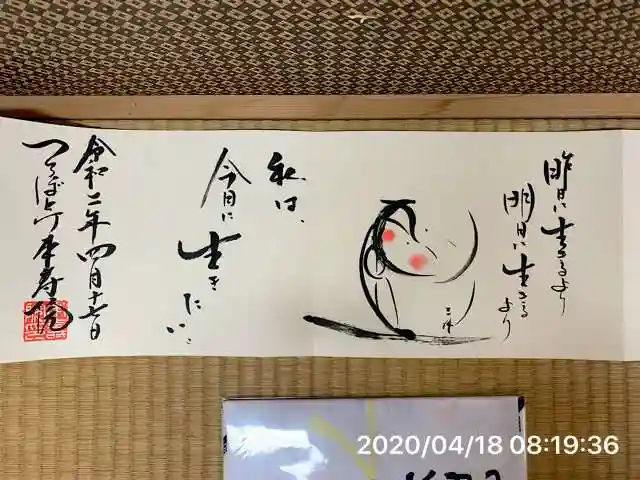 昨日に生きるより
明日に生きるより
私は、
今日に生きたい…
令和二年四月十七日
2020/04/18 08:19:36